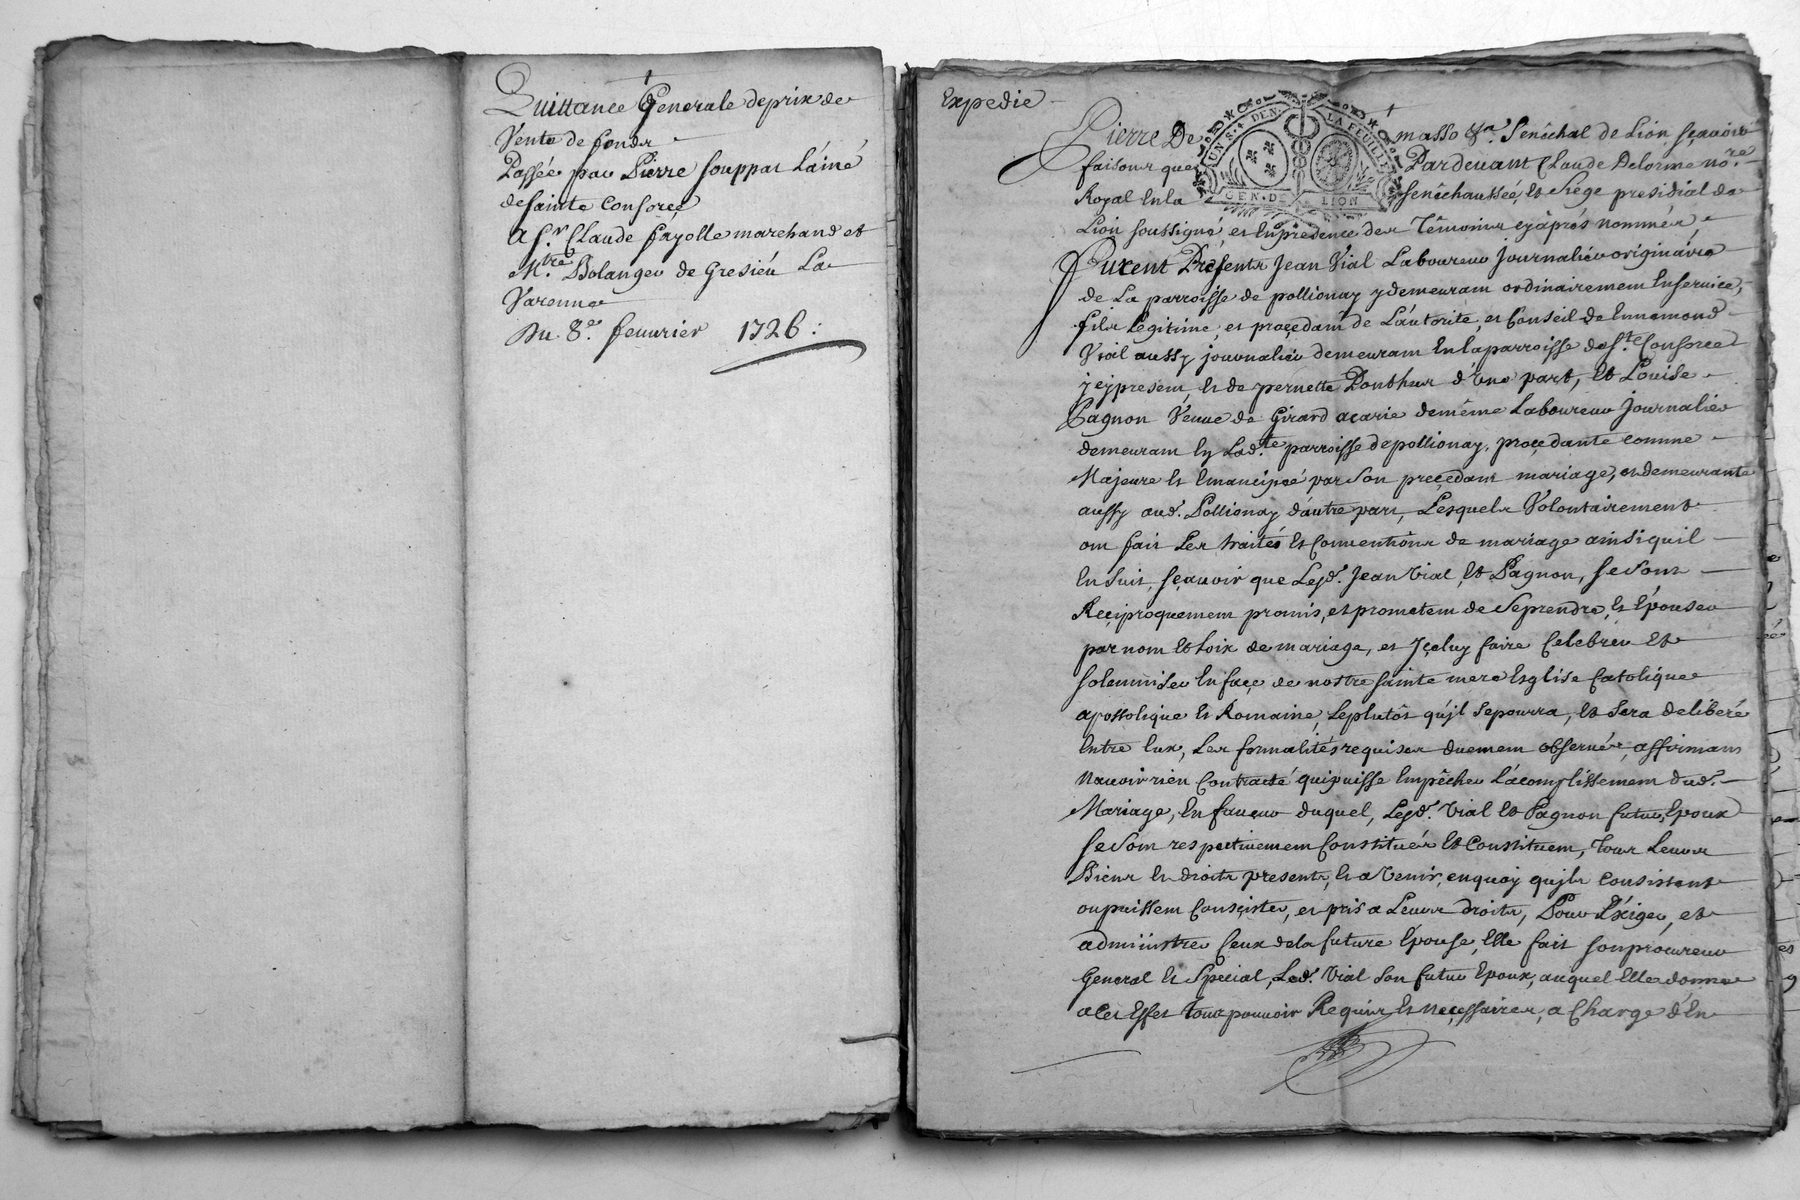 Quittance Generale de prix de
Vente de fonds
Passée par Pierre souppat L'áiné
de sainte Consorce
A Sr. Claude fayolle marchand et
Mtre Bolanger de Gresieu La
Varenne
Du 8e. feuurier 1726 :
Expedié
Pierre De masso &a. Senêchal de Lion sçauoir
faisons que Pardeuant Claude Delorme nore.
Royal En la senêchaussée, et siége presidial de
Lion soussigné, et En presence des Témoins cyáprés nommés,
Furent Presents Jean Vial Laboureur Journalier originaire
de La parroisse de pollionay y demeurant ordinairement En seruice,
fils Legitime, et proçedant de L'autorité, et Conseil de Ennemond
Vial aussy journalier demeurant En la parroisse de Ste. Consorce
jcy present, et de pernette Ponthus d'Une part, Et Louise
Pagnon Veuue de Girard acarie de même Laboureur Journalier
demeurant En Ladte. parroisse de pollionay, proçedante comme
Majeure Et Emancipée par son preçedant mariage, et demeurante
aussy aud. Pollionay d'áutre part, Lesquels Volontairement
ont fait Les traités Et Conuentions de mariage ainsi qu'il
En suit, sçauoir que Lesd. Jean Vial, Et Pagnon, se sont
Reçiproquement promis, et promettent de se prendre, Et Epouser
par nom Et Loix de mariage, et Jçeluy faire Celebrer Et
solemniser En façe de nostre sainte mere Esglise Catolique
apostolique Et Romaine, Le plutôt qu'jl se pourra, Et sera deliberé
Entre Eux, Les formalités requises duement obseruées, affirmant
N'auoir rien Contracté qui puisse Empêcher L'ácomplissement dud.
Mariage, En faueur duquel, Lesd. Vial Et Pagnon futurs Epoux
se sont respectiuement Constitués Et Constituent, tous Leurs
Biens Et droits presents, Et a Venir, en quoy qu'jls consistent
ou puissent Consçister, et pris a Leurs droits, Pour L'éxiger, et
administrer Ceux de la future Epouse, Elle fait son procureur
General Et Special, Led. Vial son futur Epoux, auquel Elle donne
a Cet Effet tous pouuoir Requis Et neçessaires, a Charge d'En
UN. S. 4 DEN. LA FEUILLE
GEN. DE LION